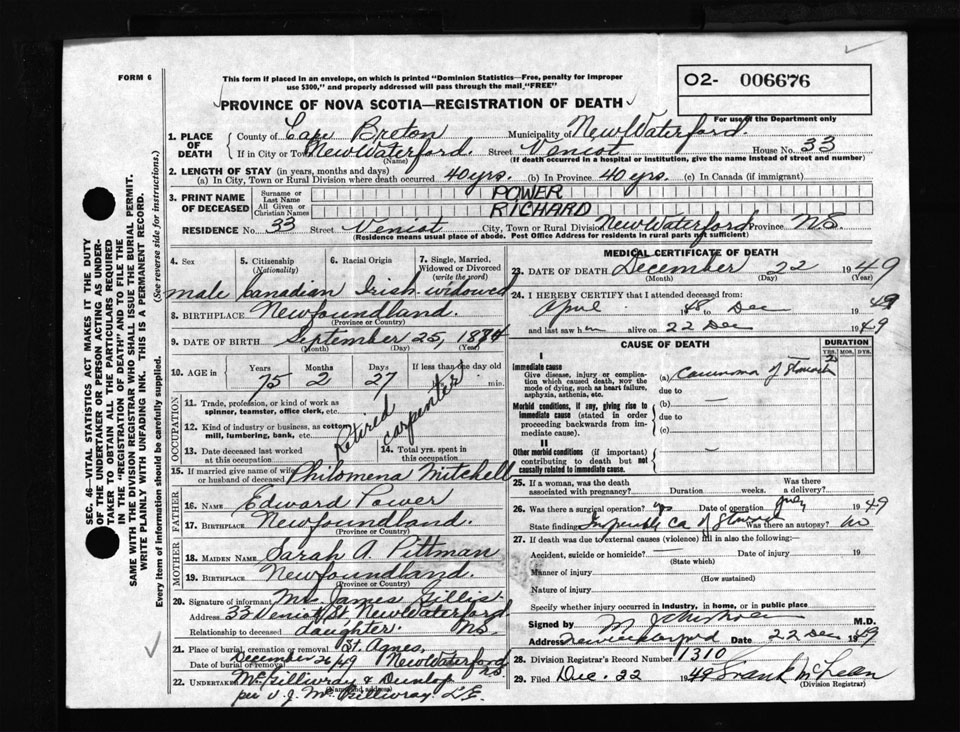 FORM 6
This form if placed in an envelope, on which is printed "Dominion Statistics—Free, penalty for improper
use $300," and properly addressed will pass through the mail "FREE"
O2- 006676
PROVINCE OF NOVA SCOTIA—REGISTRATION OF DEATH
For use of the Department only
1. PLACE OF DEATH
County of Cape Breton Municipality of New Waterford.
If in City or Town New Waterford. Street Veniot House No. 33
(Name) (If death occurred in a hospital or institution, give name instead of street and number)
2. LENGTH OF STAY (in years, months and days)
(a) In City, Town or Rural Division where death occurred 40 yrs. (b) In Province 40 yrs. (c) In Canada (if immigrant)
3. PRINT NAME OF DECEASED
Surname or Last Name POWER
All Given or Christian Names RICHARD
RESIDENCE No. 33 Street Veniot City, Town or Rural Division New Waterford Province N.S.
(Residence means usual place of abode. Post Office Address for residents in rural parts not sufficient)
4. Sex
5. Citizenship (Nationality)
6. Racial Origin
7. Single, Married, Widowed or Divorced (write the word)
male Canadian Irish widowed
8. BIRTHPLACE Newfoundland.
(Province or Country)
9. DATE OF BIRTH September 25, 1874
(Month) (Day) (Year)
10. AGE in Years Months Days If less than one day old
75 2 27 min.
OCCUPATION
11. Trade, profession, or kind of work as
spinner, teamster, office clerk, etc.
12. Kind of industry or business, as cotton
mill, lumbering, bank, etc.
Retired carpenter
13. Date deceased last worked
at this occupation
14. Total yrs. spent in
this occupation
15. If married give name of wife
or husband of deceased Philomena Mitchell
FATHER
16. NAME Edward Power
17. BIRTHPLACE Newfoundland.
(Province or Country)
MOTHER
18. MAIDEN NAME Sarah A. Pittman
19. BIRTHPLACE Newfoundland.
(Province or Country)
20. Signature of informant Mrs James Gillis
Address 33 Veniot St. New Waterford
Relationship to deceased daughter. N.S.
21. Place of burial, cremation or removal St. Agnes,
Date of burial or removal December 26/49 New Waterford N.S.
22. UNDERTAKER McGillivrdy & Dunlop
(Name and address)
per J. McGillivray L.E.
MEDICAL CERTIFICATE OF DEATH
23. DATE OF DEATH December 22 1949
(Month) (Day) (Year)
24. I HEREBY CERTIFY that I attended deceased from:
April 1948 to Dec 1949.
and last saw him alive on 22 Dec 1949
CAUSE OF DEATH
DURATION
YRS. MOS. DYS.
I
Immediate cause
Give disease, injury or complication which caused death, NOT the mode of dying, such as heart failure, asphyxia, asthenia, etc.
(a) Carcinoma of Stomach 2
due to
Morbid conditions, if any, giving rise to immediate cause (stated in order proceeding backwards from immediate cause).
(b) —
due to
(c)
II
Other morbid conditions (if important) contributing to death but not causally related to immediate cause. —
25. If a woman, was the death
associated with pregnancy? Duration weeks. Was there a delivery?
26. Was there a surgical operation? yes Date of operation July 1949
State finding Inoperable Ca of Stomach Was there an autopsy? No
27. If death was due to external causes (violence) fill in also the following:—
Accident, suicide or homicide? — Date of injury 19
(State which)
Manner of injury
(How sustained)
Nature of injury
Specify whether injury occurred in industry, in home, or in public place
Signed by M.D.
Address New Waterford Date 22 Dec 1949
28. Division Registrar's Record Number 1310
29. Filed Dec. 22 1949 Frank McLean
(Division Registrar)
SEC. 46—VITAL STATISTICS ACT MAKES IT THE DUTY
OF THE UNDERTAKER OR PERSON ACTING AS UNDERTAKER
TO OBTAIN ALL THE PARTICULARS REQUIRED
IN THE "REGISTRATION OF DEATH" AND TO FILE THE
SAME WITH THE DIVISION REGISTRAR WHO SHALL ISSUE THE BURIAL PERMIT.
WRITE PLAINLY WITH UNFADING INK. THIS IS A PERMANENT RECORD.
Every item of information should be carefully supplied. (See reverse side for instructions.)